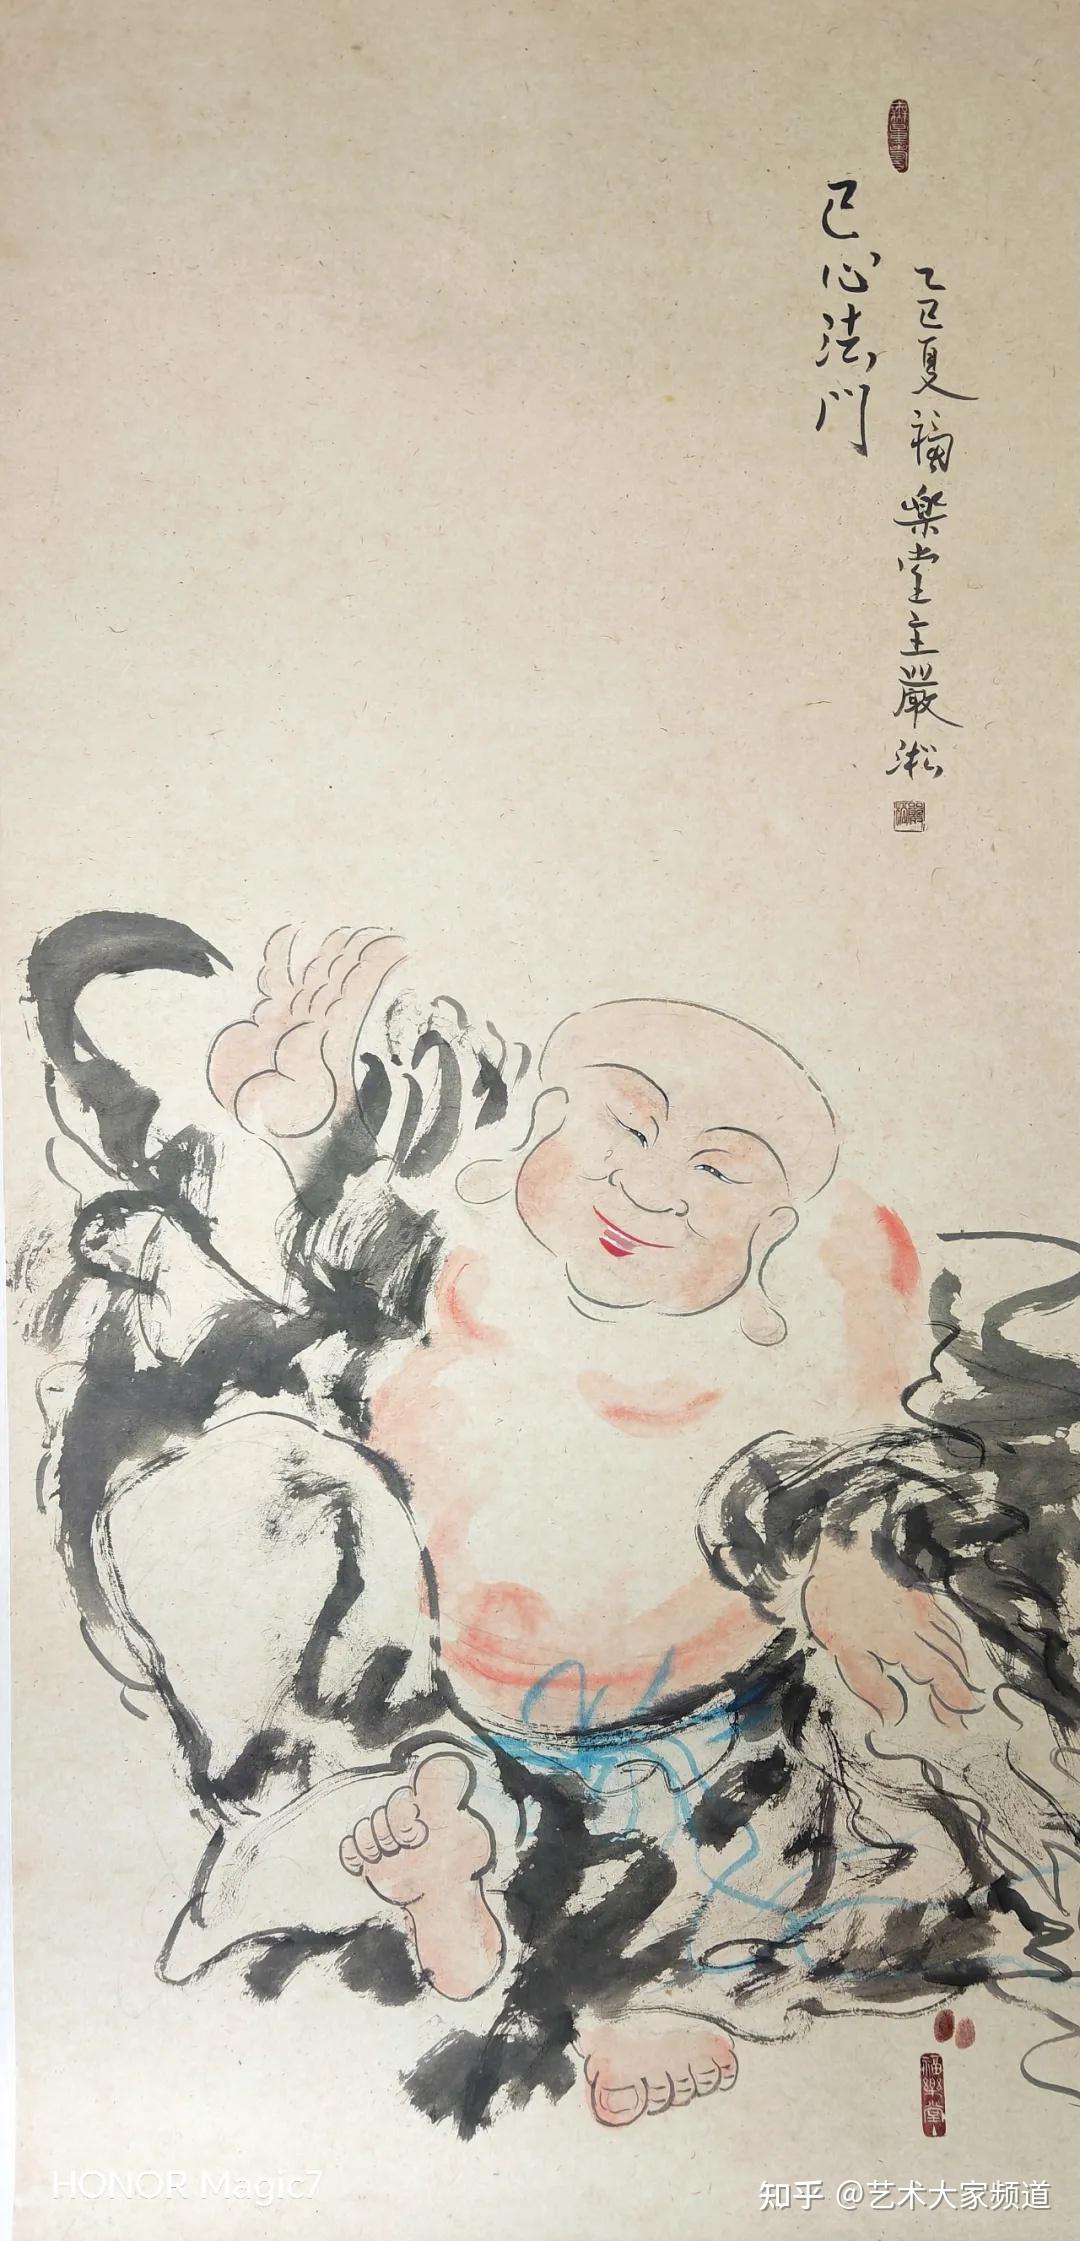 己心法門
乙巳夏 福樂堂主嚴淞
福樂堂
HONOR Magic7
知乎 @艺术大家频道